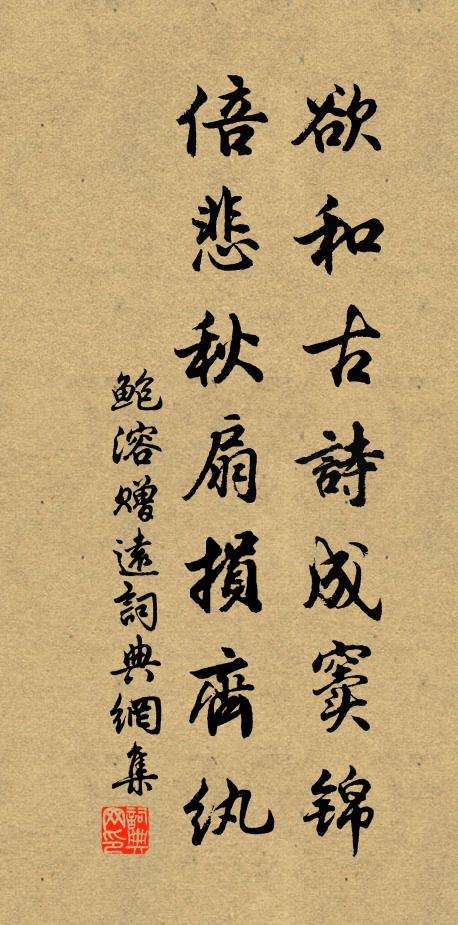 欲和古詩成竇錦
倍悲秋扇損齊紈
鮑溶贈遠詞典網集
詞典網印